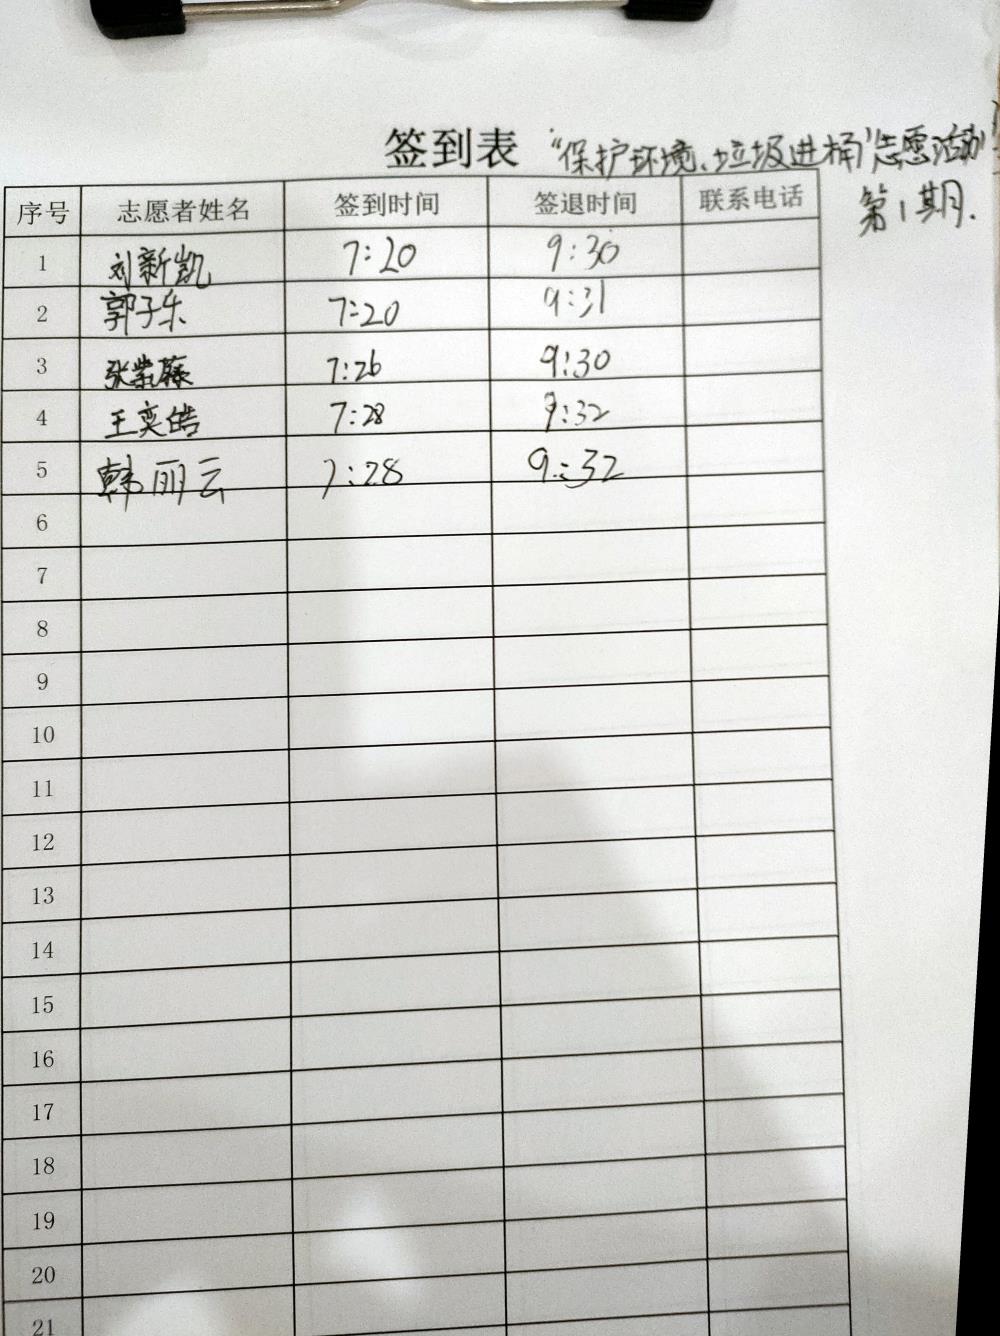 签到表 “保护环境、垃圾进桶”志愿活动
第1期.
序号 志愿者姓名 签到时间 签退时间 联系电话
1 刘新凯 7:20 9:30
2 郭子乐 7:20 9:31
3 张紫藤 7:26 9:30
4 王奕皓 7:28 9:32
5 韩丽云 7:28 9:32
6
7
8
9
10
11
12
13
14
15
16
17
18
19
20
21